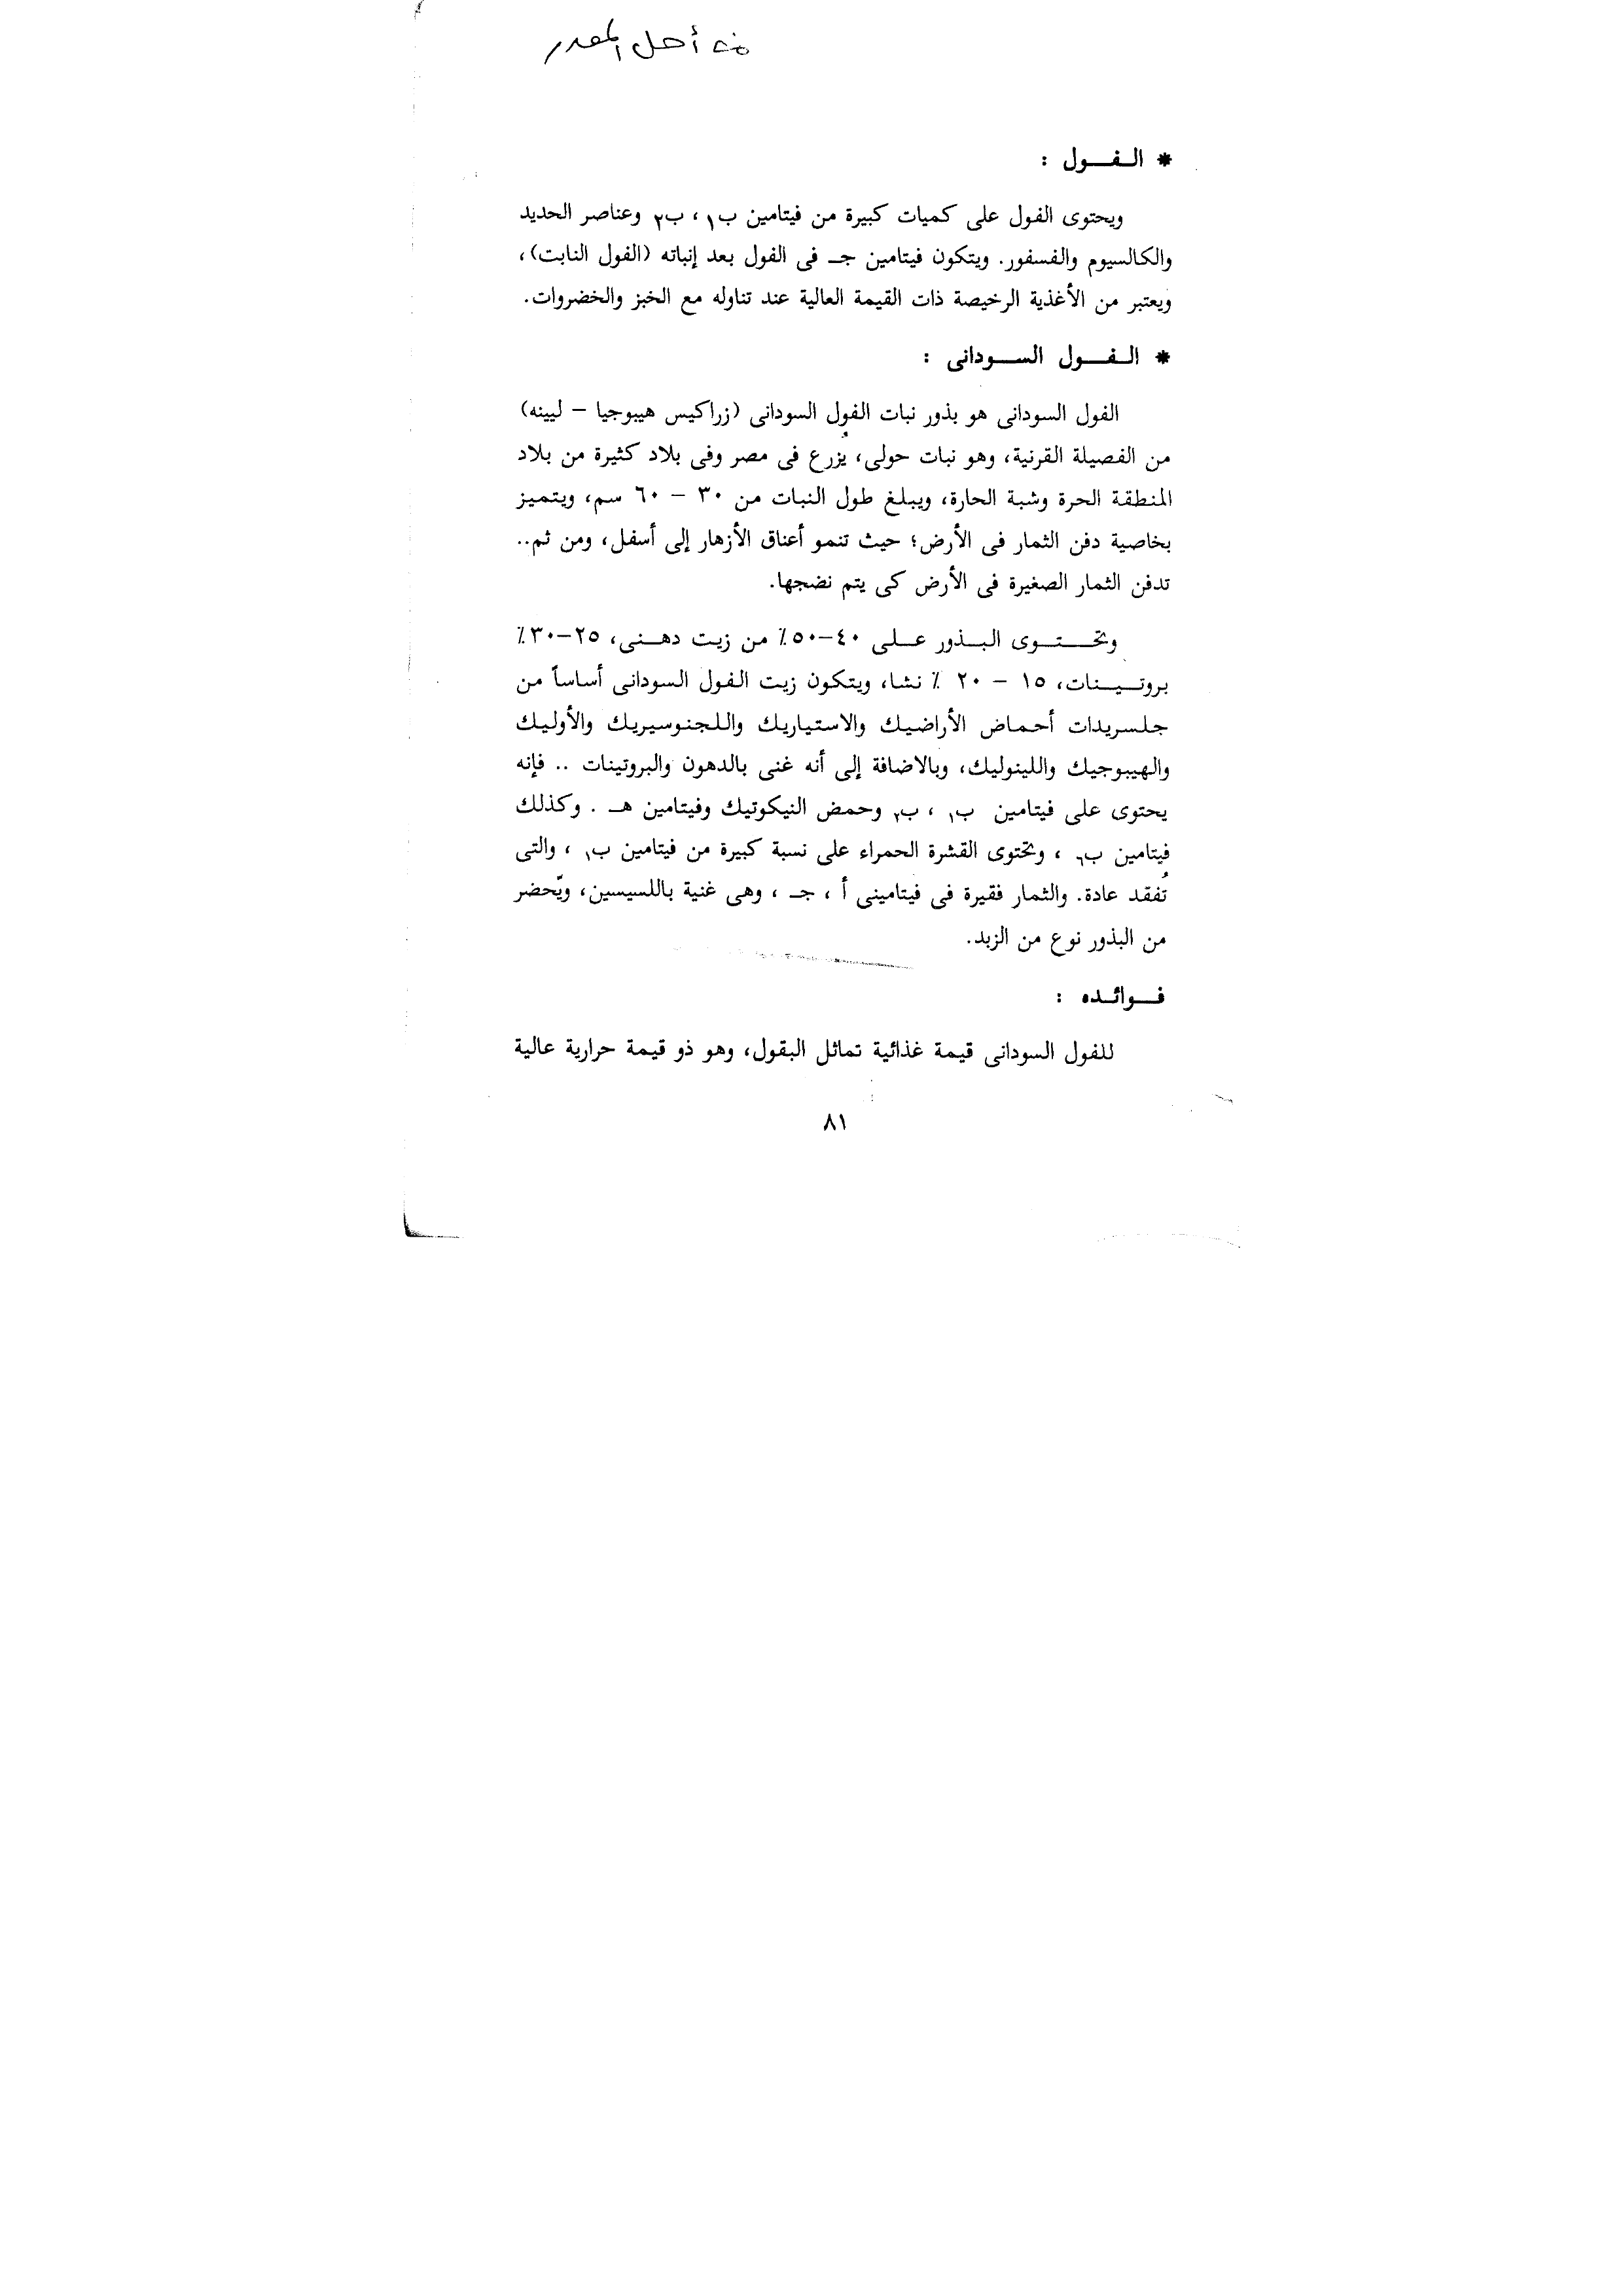 من أصل المصدر
* الفول :
ويحتوى الفول على كميات كبيرة من فيتامين ب١ ، ب٢ وعناصر الحديد
والكالسيوم والفسفور. ويتكون فيتامين جـ فى الفول بعد إنباته (الفول النابت)،
ويعتبر من الأغذية الرخيصة ذات القيمة العالية عند تناوله مع الخبز والخضروات.
* الفول السودانى :
الفول السودانى هو بذور نبات الفول السودانى (زراكيس هيبوجيا – ليينه)
من الفصيلة القرنية، وهو نبات حولى، يُزرع فى مصر وفى بلاد كثيرة من بلاد
المنطقة الحرة وشبة الحارة، ويبلغ طول النبات من ٣٠ – ٦٠ سم، ويتميز
بخاصية دفن الثمار فى الأرض؛ حيث تنمو أعناق الأزهار إلى أسفل، ومن ثم..
تدفن الثمار الصغيرة فى الأرض كى يتم نضجها.
وتحتوى البذور على ٤٠–٥٠٪ من زيت دهنى، ٢٥–٣٠٪
بروتينات، ١٥ – ٢٠ ٪ نشا، ويتكون زيت الفول السودانى أساساً من
جلسريدات أحماض الأراضيك والاستياريك واللجنوسيريك والأوليك
والهيبوجيك واللينوليك، وبالاضافة إلى أنه غنى بالدهون والبروتينات .. فإنه
يحتوى على فيتامين ب١ ، ب٢ وحمض النيكوتيك وفيتامين هـ . وكذلك
فيتامين ب٦ ، وتحتوى القشرة الحمراء على نسبة كبيرة من فيتامين ب١ ، والتى
تُفقد عادة. والثمار فقيرة فى فيتامينى أ ، جـ ، وهى غنية باللسيسين، ويّحضر
من البذور نوع من الزبد.
فوائده :
للفول السودانى قيمة غذائية تماثل البقول، وهو ذو قيمة حرارية عالية
٨١